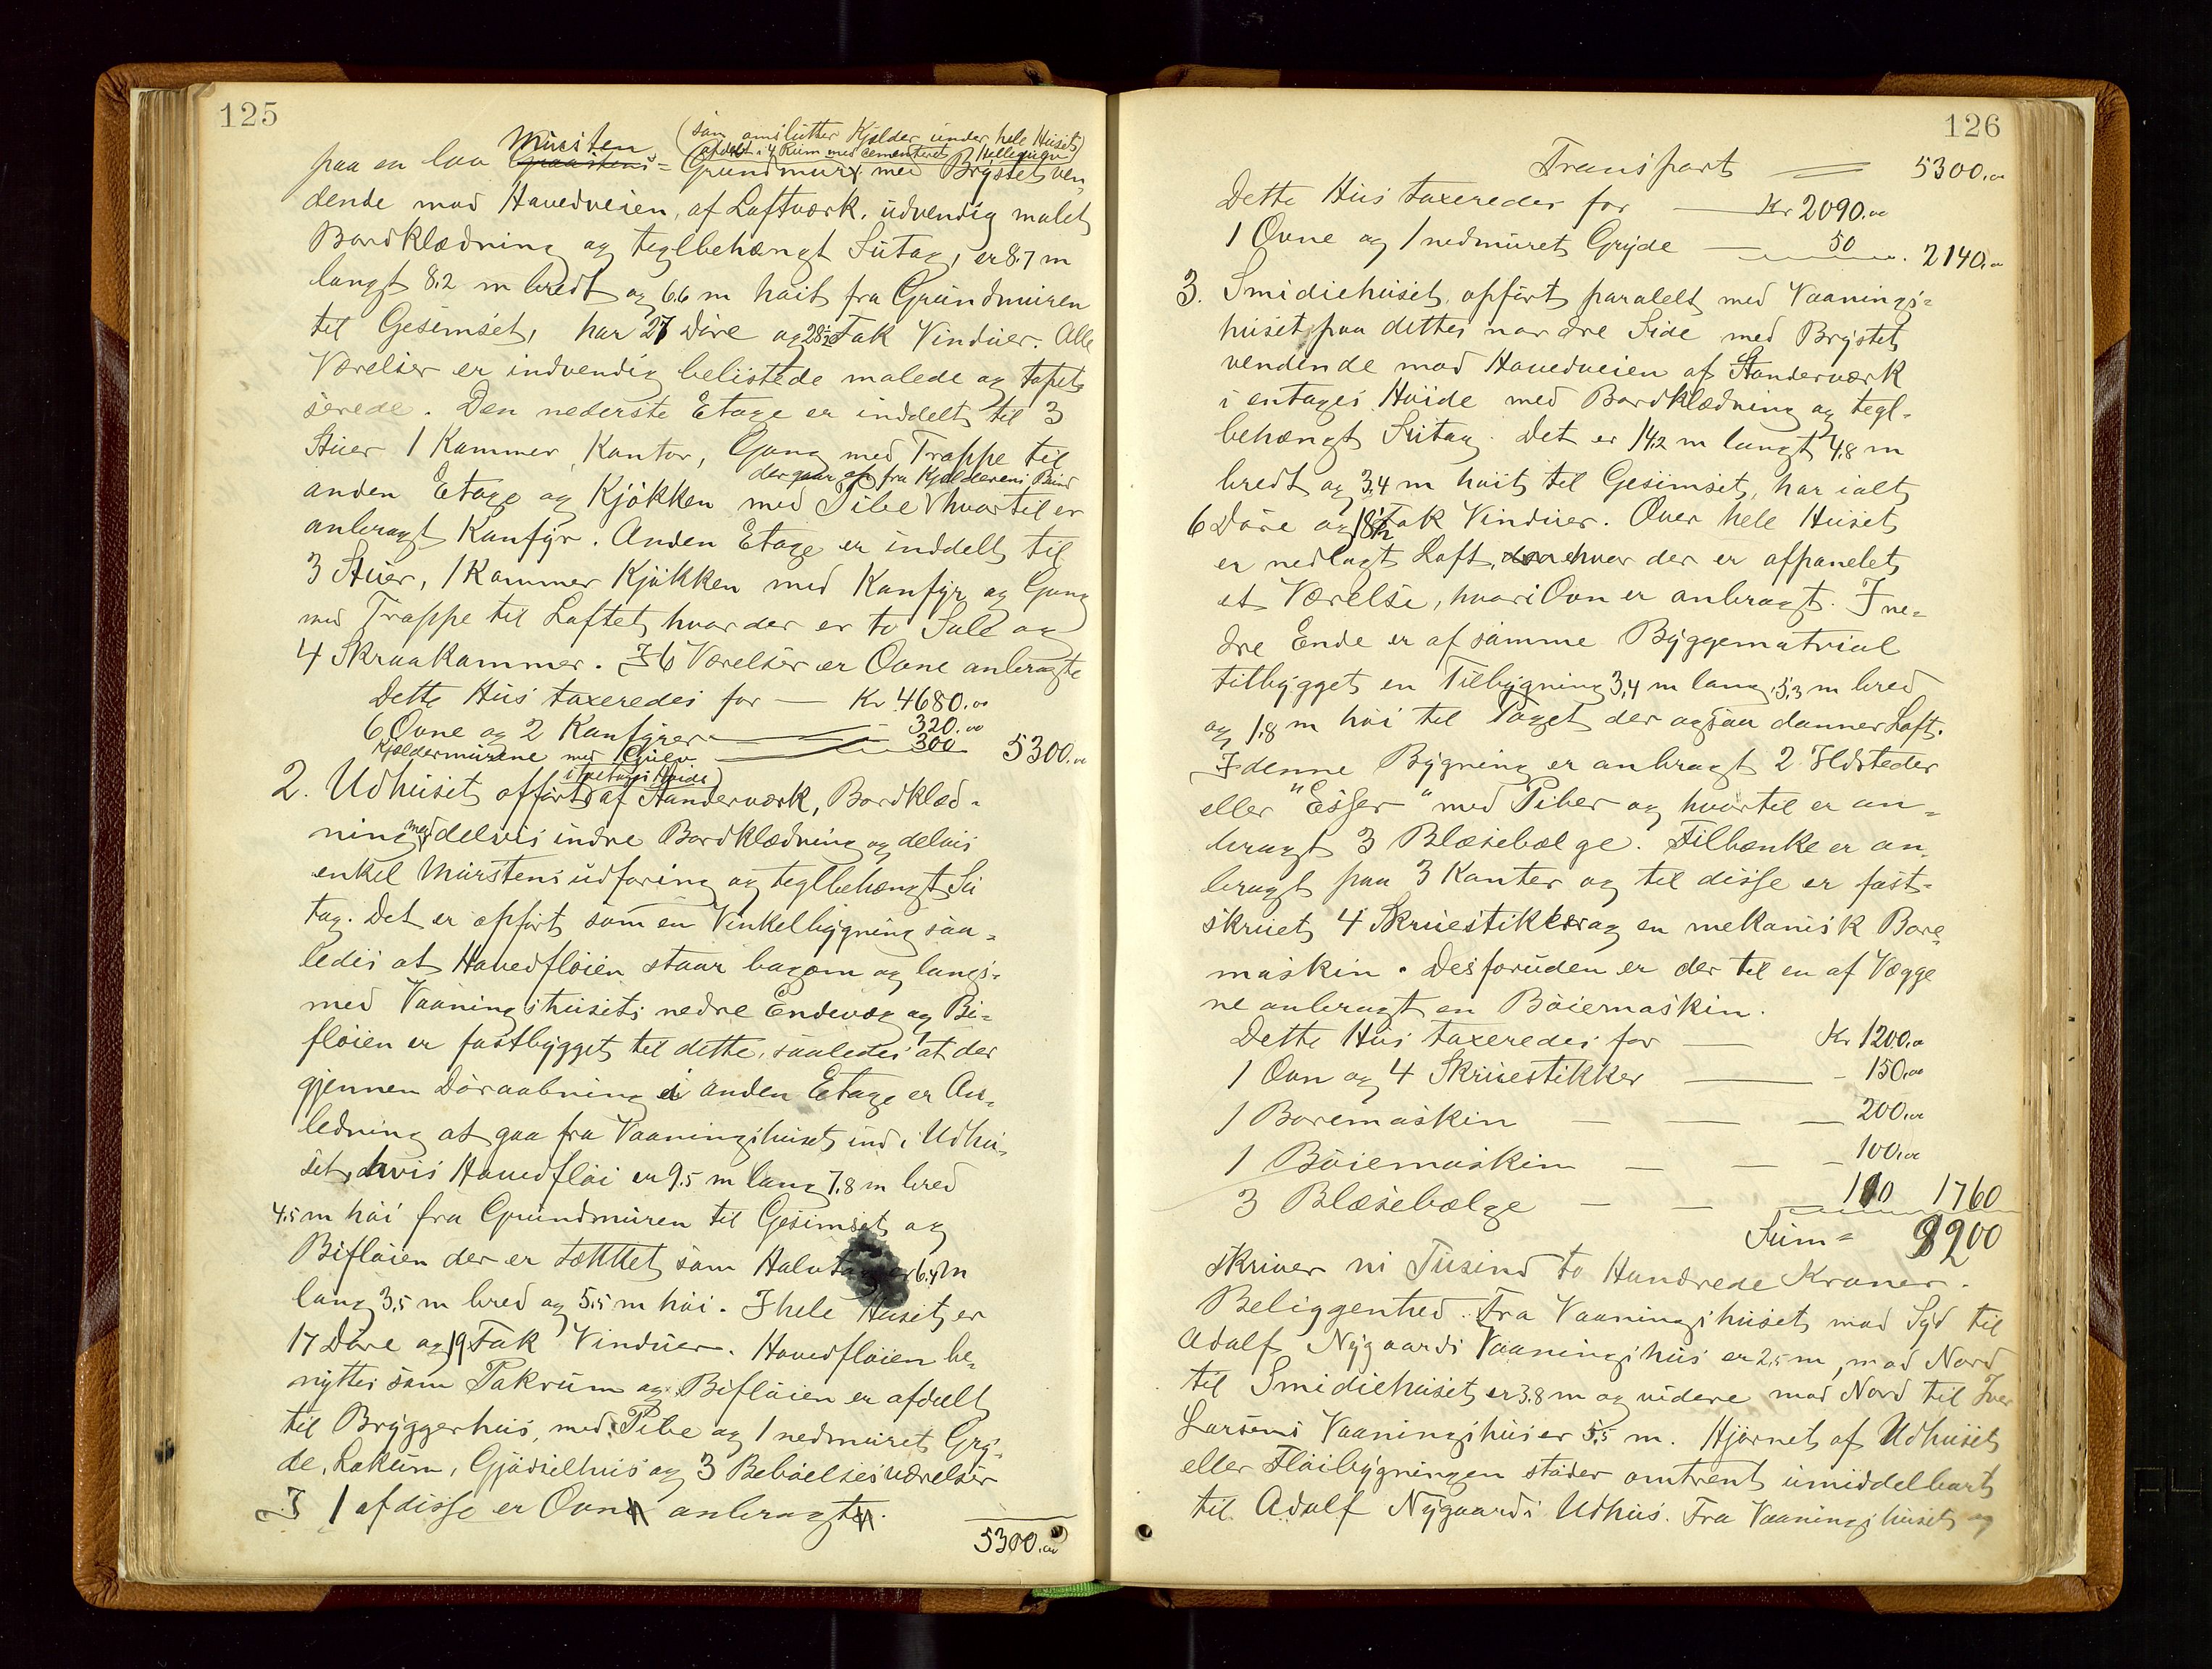 125
(som omslutter Kjælder under hele Huset)
Mursten afdelt i 4 Rum med cementeret Hellegulv
paa en lav Graastens= Grundmur med Brystet ven-
dende mod Hovedveien, af Laftværk, udvendig malet
Bordklædning og teglbehængt Sutag, er 8.7 m
langt 8.2 m bredt og 6.6 m høit fra Grundmuren
til Gesimset, har 27 Døre og 28½ Fak Vinduer. Alle
Værelser er indvendig belistede malede og tapet-
serede. Den nederste Etage er inddelt til 3
Stuer 1 Kammer, Kontor, Gang med Trappe til
der gaar op fra Kjælderens Bund
anden Etage og Kjøkken med Pibe hvortil er
anbragt Komfyr. Anden Etage er inddelt til
3 Stuer, 1 Kammer Kjøkken med Komfyr og Gang
med Trappe til Loftet hvor der er to Sale og
4 Skraakammer. I 6 Værelser er Ovne anbragte
Dette Hus taxeredes for — Kr 4680.00
6 Ovne og 2 Komfyrer — 320.00
Kjældermurene med Gulv — 300 5300.00
i toetages Høide)
2. Udhuset opført af Standerværk, Bordklæd-
ning med delvis indre Bordklædning og delvis
enkel Murstens udforing og teglbehængt Su
tag. Det er opført som en Vinkelbygning saa-
ledes at Hovedfløien staar bagom og langs-
med Vaaningshusets nedre Endevæg og Bi-
fløien er fastbygget til dette, saaledes at der
gjennem Døraabning i anden Etage er An-
ledning at gaa fra Vaaningshuset ind i Udhu-
set, hvis Hovedfløi er 9.5 m lang 7.8 m bred
4.5 m høi fra Grundmuren til Gesimset og
Bifløien der er tættet som Halvtag er 6.4 m
lang 3.5 m bred og 5.5 m høi. I hele Huset er
17 Døre og 19 Fak Vinduer. Hovedfløien be-
nyttes som Pakrum og Bifløien er afdelt
til Bryggerhus, med Pibe og 1 nedmuret Gry-
de, Lokum, Gjødselhus og 3 Beboelsesværelser
I 1 af disse er Ovn anbragt.
5300.00
126
Transport = 5300.00
Dette Hus taxeredes for — Kr 2090.00
1 Ovne og 1 nedmuret Gryde — 50 . 2140.00
3. Smidiehuset, opført paralelt med Vaanings-
huset paa dettes nordre Side med Brystet
vendende mod Hovedveien af Standerværk
i entages Høide med Bordklædning og tegl-
behængt Sutag. Det er 14.2 m langt 4.8 m
bredt og 3.4 m høit til Gesimset, har ialt
6 Døre og 18½ Fak Vinduer. Over hele Huset
er nedlagt Loft, hvor der er afpanelet
et Værelse, hvori Ovn er anbragt. I ne-
dre Ende er af samme Byggematrial
tilbygget en Tilbygning 3,4 m lang, 5.3 m bred
og 1.8 m høi til Taget der ogsaa danner Loft.
I denne Bygning er anbragt 2 Ildsteder
eller "Esser" med Piber og hvortil er an-
bragt 3 Blæsebælge. Filbænke er an-
bragt paa 3 Kanter og til disse er fast-
skruet 4 Skruestikker og en mekanisk Bore-
maskin. Desforuden er der til en af Vægge
ne anbragt en Bøiemaskin.
Dette Hus taxeredes for — Kr 1200.00
1 Ovn og 4 Skruestikker — - 150.00
1 Boremaskin — — — 200.00
1 Bøiemaskin — — - 100.00
3 Blæsebælge — — 110 1760
Sum = 9200
skriver ni Tusind to Hundrede Kroner.
Beliggenhed. Fra Vaaningshuset mod Syd til
Adolf Nygaards Vaaningshus er 2.5 m, mod Nord
til Smidiehuset er 3.8 m og videre mod Nord til Iver
Larsens Vaaningshus er 5.5 m. Hjørnet af Udhuset
eller Fløibygningen støder omtrent umiddelbart
til Adolf Nygaards Udhus. Fra Vaaningshuset og